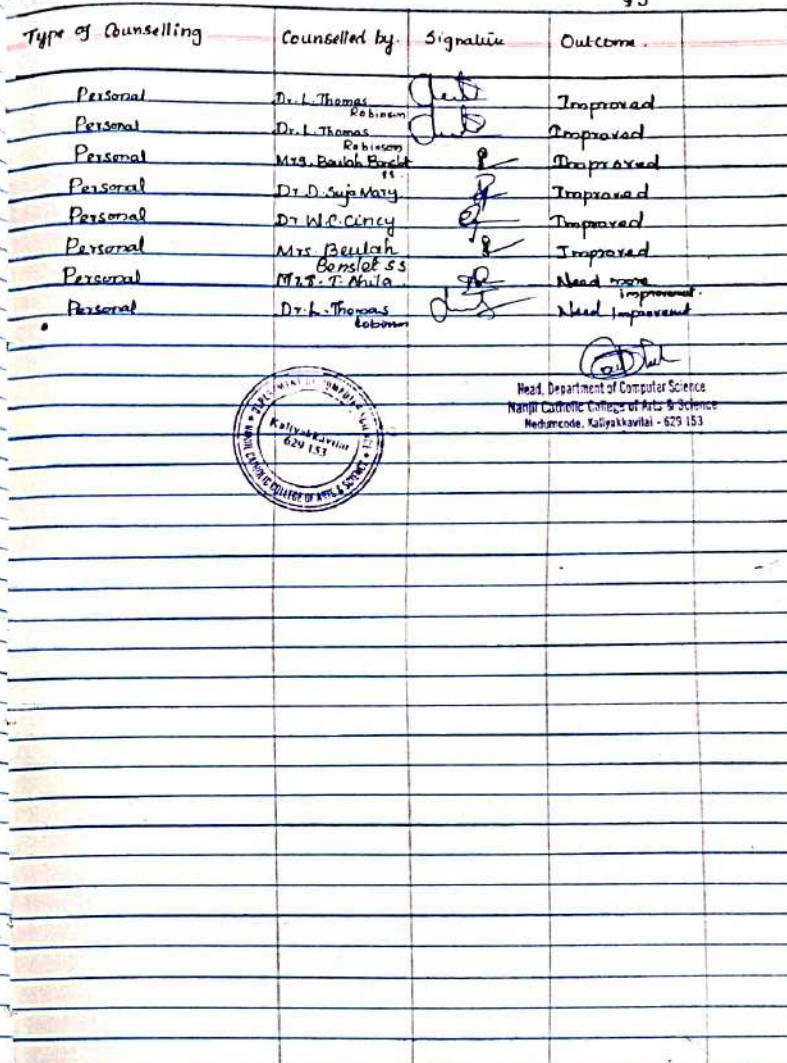 Type of Counselling Counselled by. Signature Outcome.
Personal Dr. L. Thomas Robinson Improved
Personal Dr. L. Thomas Robinson Improved
Personal Mrs. Beulah SS. Improved
Personal Dr D. Suja Mary Improved
Personal Dr W.C. Cincy Improved
Personal Mrs. Beulah Benslet SS Improved
Personal T. Need more improvement.
Personal Dr. L. Thomas Robinson Need Improvement
Head, Department of Computer Science
Nanjil Catholic College of Arts & Science
Nedumcode, Kaliyakkavilai - 629 153
DEPARTMENT OF COMPUTER SCIENCE
Kaliyakkavilai
629 153
CATHOLIC COLLEGE OF ARTS & SCIENCE